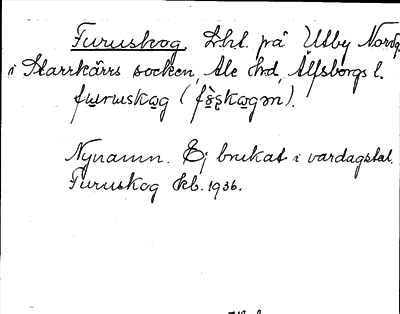 Furuskog. Lht. på Utby Nordg.
i Starrkärrs socken, Ale hd, Älfsborgs l.
furuskog (
Nynamn. Ej brukat i vardagstal.
Furuskog kb. 1936.